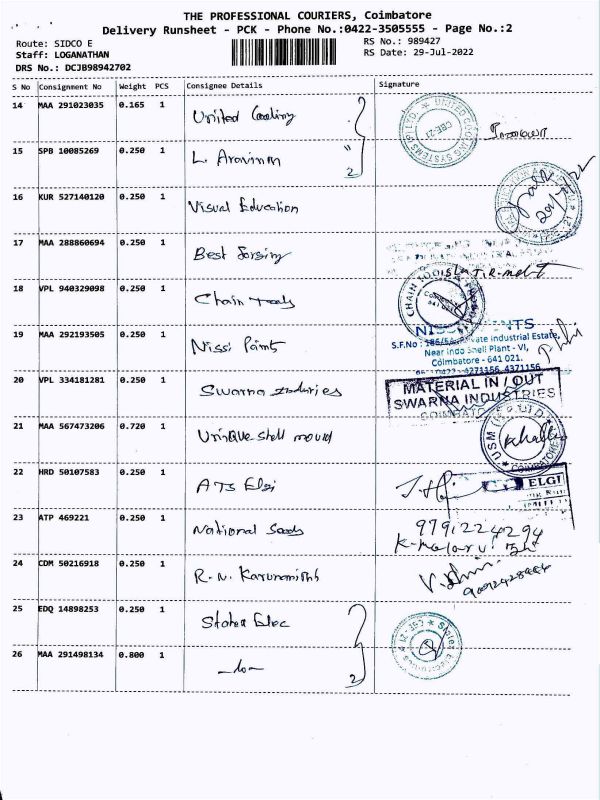 THE PROFESSIONAL COURIERS, Coimbatore
Delivery Runsheet - PCK - Phone No.:0422-3505555 - Page No.:2
Route: SIDCO E
RS No.: 989427
Staff: LOGANATHAN
RS Date: 29-Jul-2022
DRS No.: DCJB98942702
S No Consignment No Weight PCS Consignee Details Signature
14 MAA 291023035 0.165 1 United Cooling
UNITED COOLING SYSTEMS (P) LTD. CBE-21
15 SPB 10085269 0.250 1 L. Aravinth " 2
16 KUR 527140120 0.250 1 Visual Education
17 MAA 288860694 0.250 1 Best Forging
18 VPL 940329098 0.250 1 Chain Tools
CHAIN TOOLS
19 MAA 292193505 0.250 1 Nissi Paints
S.F.No : 186/ Private Industrial Estate,
Near Indo Shell Plant - VI,
Coimbatore - 641 021.
4271156, 4371156
20 VPL 334181281 0.250 1 Swarna Industries
MATERIAL IN / OUT
SWARNA INDUSTRIES
COIMBATORE
21 MAA 567473206 0.720 1 Unique shell mould
USM (I) (P) LTD COIMBATORE
22 HRD 50107583 0.250 1 ATS Elgi
ELGI
23 ATP 469221 0.250 1 National Seeds
9791224294
24 CDM 50216918 0.250 1 R. N. Karunanithi
25 EDQ 14898253 0.250 1 Stator Elec
26 MAA 291498134 0.800 1 -do- 2